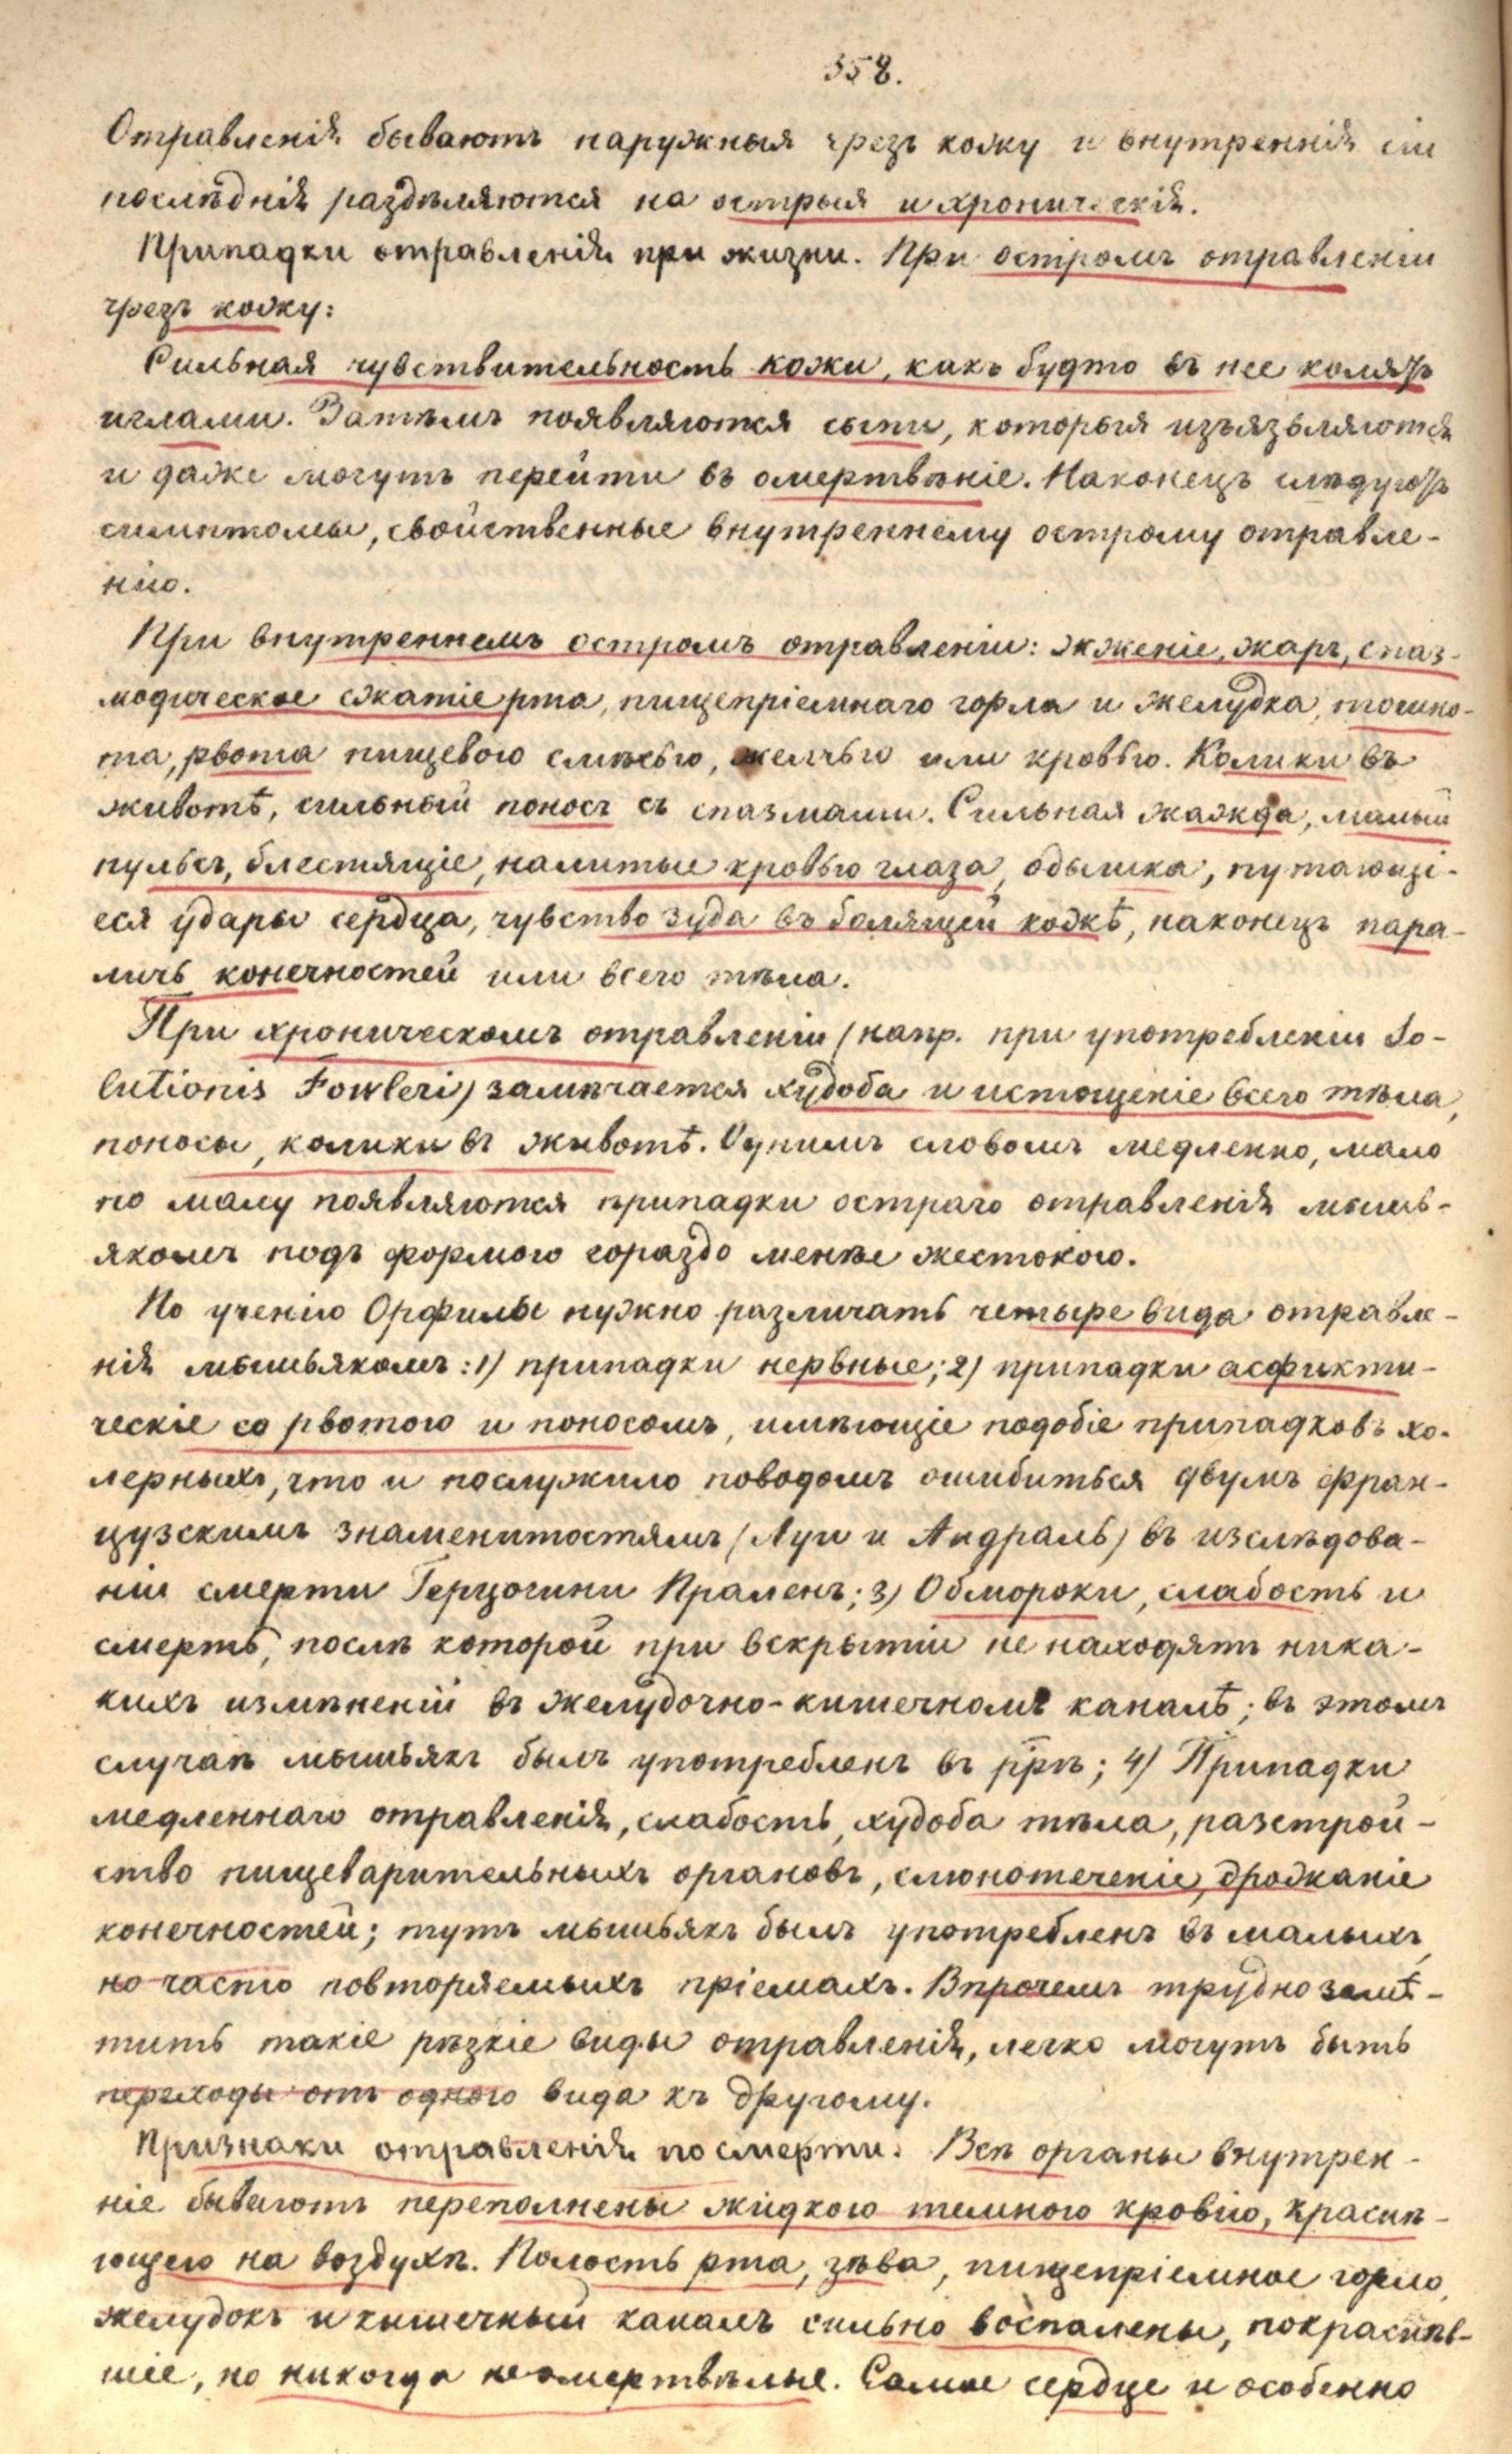 358.
Отравленія бываютъ наружныя чрезъ кожу и внутреннія сіи
послѣднія раздѣляются на острыя и хроническія.
Припадки отравленія при жизни. При остромъ отравленіи
чрезъ кожу:
Сильная чувствительность кожи, какъ будто въ нее колятъ
иглами. Затѣмъ появляются сыпи, которыя изъязвляются
и даже могутъ перейти въ омертвѣніе. Наконецъ слѣдуютъ
симптомы, свойственные внутреннему острому отравле-
нію.
При внутреннемъ остромъ отравленіи: жженіе, жаръ, спаз-
модическое сжатіе рта, пищепріемнаго горла и желудка, тошно-
та, рвота пищевою смѣсью, желчью или кровью. Колики въ
животѣ, сильный поносъ съ спазмами. Сильная жажда, малый
пульсъ, блестящіе, налитые кровью глаза, одышка, путающі-
еся удары сердца, чувство зуда въ болящей кожѣ, наконецъ пара-
личъ конечностей или всего тѣла.
При хроническомъ отравленіи (напр. при употребленіи So-
lutionis Fowleri) замѣчается худоба и истощеніе всего тѣла,
поносы, колики въ животѣ. Однимъ словомъ медленно, мало
по малу появляются припадки остраго отравленія мышь-
якомъ подъ формою гораздо менѣе жестокою.
По ученію Орфилы нужно различать четыре вида отравле-
нія мышьякомъ: 1) припадки нервные; 2) припадки асфикти-
ческіе со рвотою и поносомъ, имѣющіе подобіе припадковъ хо-
лерныхъ, что и послужило поводомъ ошибиться двумъ фран-
цузскимъ знаменитостямъ (Луи и Андраль) въ изслѣдова-
ніи смерти Герцогини Праленъ; 3) Обмороки, слабость и
смерть, послѣ которой при вскрытіи не находятъ ника-
кихъ измѣненій въ желудочно-кишечномъ каналѣ; въ этомъ
случаѣ мышьякъ былъ употребленъ въ ррѣ; 4) Припадки
медленнаго отравленія, слабость, худоба тѣла, разстрой-
ство пищеварительныхъ органовъ, слюнотеченіе, дрожаніе
конечностей; тутъ мышьякъ былъ употребленъ въ малыхъ,
но часто повторяемыхъ пріемахъ. Впрочемъ трудно замѣ-
тить такіе рѣзкіе виды отравленія, легко могутъ быть
переходы отъ одного вида къ другому.
Признаки отравленія по смерти. Всѣ органы внутрен-
ніе бываютъ переполнены жидкою темною кровію, краснѣ-
ющею на воздухѣ. Полость рта, зѣва, пищепріемное горло,
желудокъ и кишечный каналъ сильно воспалены, покраснѣв-
шіе, но никогда не омертвѣлые. Самое сердце и особенно